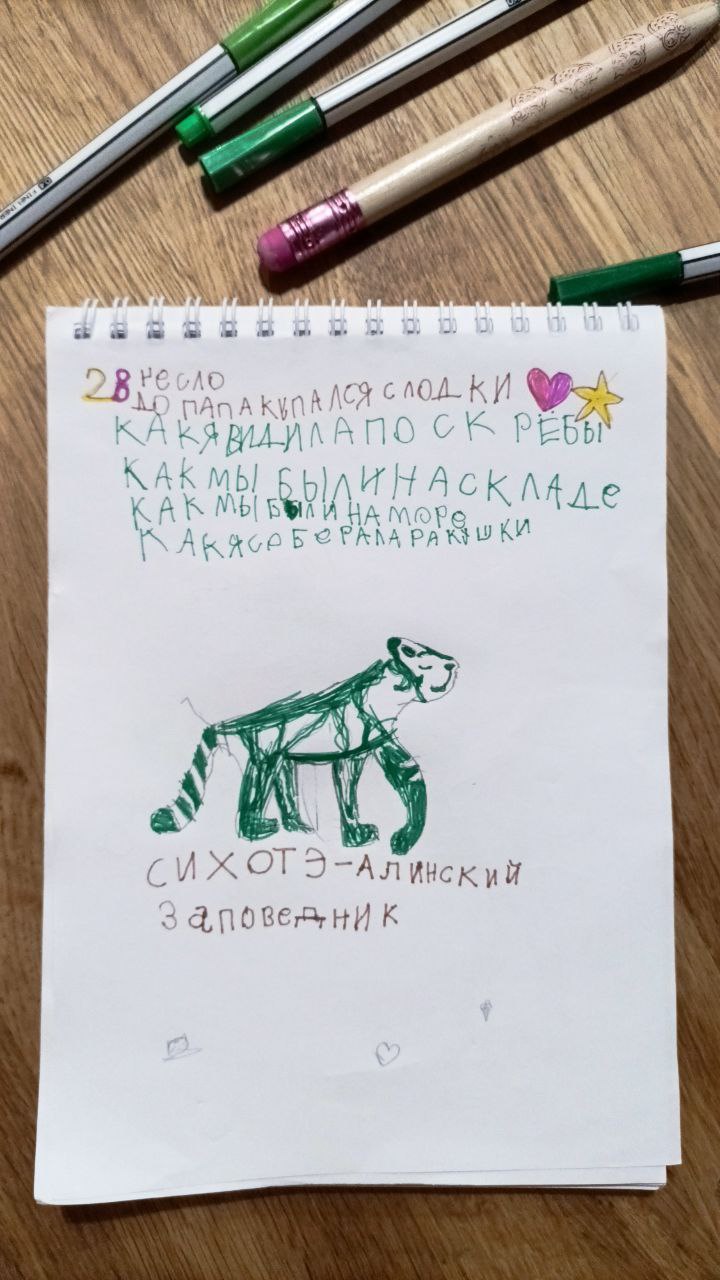 28 НЕСЛО
ДО ПАПА КУПАЛСЯ СЛОДКИ
КАК Я ВИДИЛА ПОСКРЁБЫ
КАК МЫ БЫЛИ НА СКЛАДЕ
КАК МЫ БЫЛИ НА МОРЕ
КАК Я СОБЕРАЛА РАКУШКИ
СИХОТЭ-АЛИНСКИЙ
ЗАПОВЕДНИК